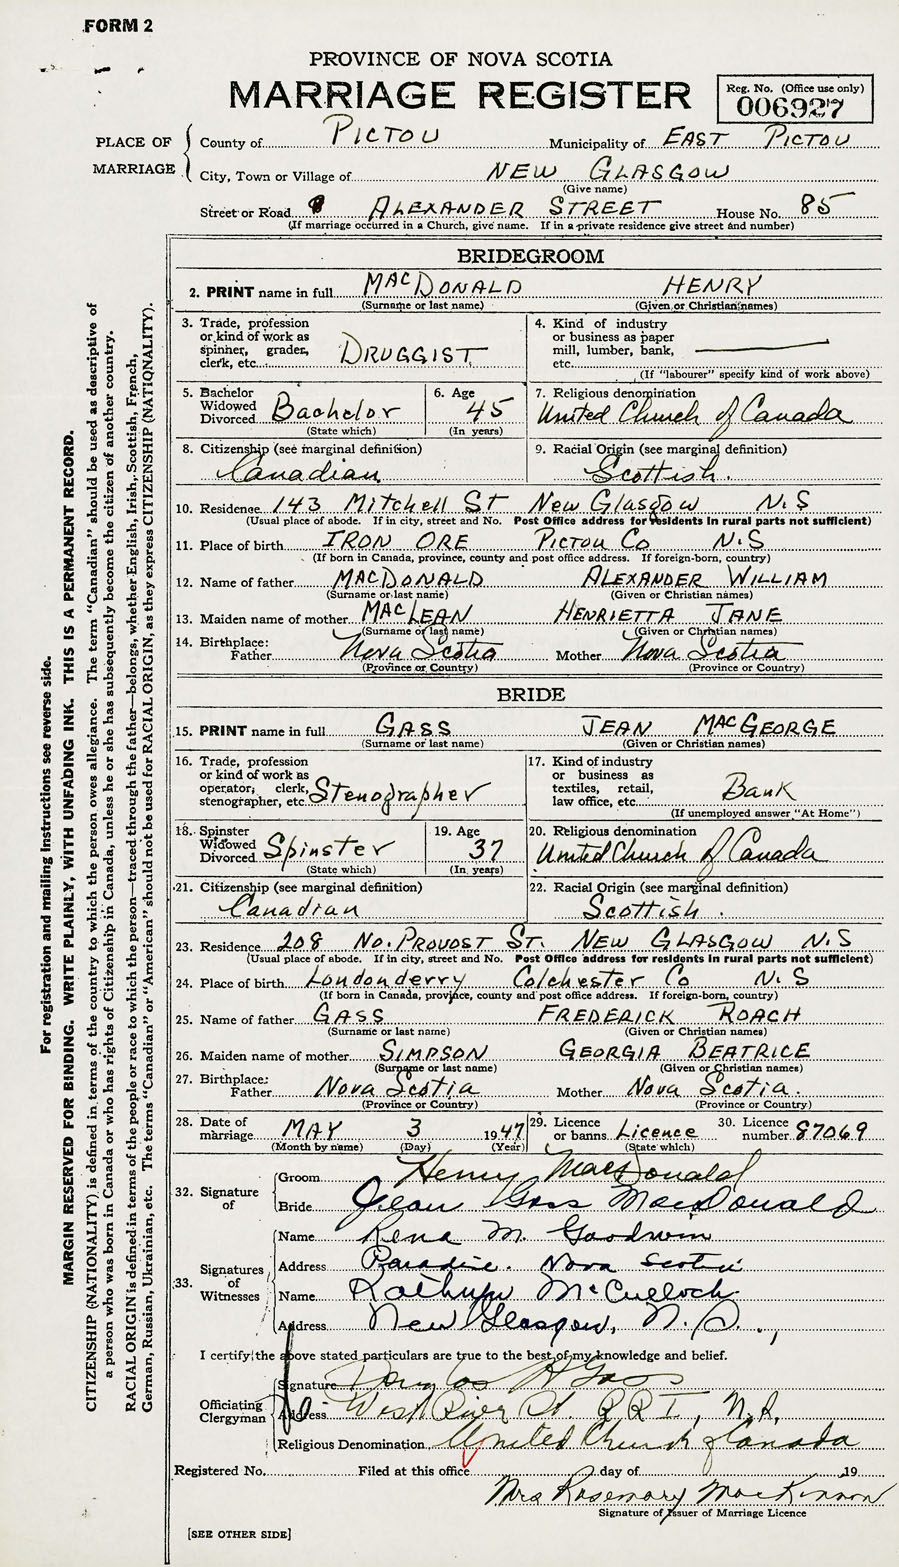 FORM 2
PROVINCE OF NOVA SCOTIA
MARRIAGE REGISTER
Reg. No. (Office use only)
006927
PLACE OF MARRIAGE
County of PICTOU Municipality of EAST PICTOU
City, Town or Village of NEW GLASGOW
(Give name)
Street or Road ALEXANDER STREET House No. 85
(If marriage occurred in a Church, give name. If in a private residence give street and number)
BRIDEGROOM
2. PRINT name in full MACDONALD HENRY
(Surname or last name) (Given or Christian names)
3. Trade, profession or kind of work as spinner, grader, clerk, etc. DRUGGIST
4. Kind of industry or business as paper mill, lumber, bank, etc.
(If "labourer" specify kind of work above)
5. Bachelor Widowed Divorced Bachelor
(State which)
6. Age 45
(In years)
7. Religious denomination
United Church of Canada
8. Citizenship (see marginal definition)
Canadian
9. Racial Origin (see marginal definition)
Scottish.
10. Residence 143 Mitchell St New Glasgow N.S
(Usual place of abode. If in city, street and No. Post Office address for residents in rural parts not sufficient)
11. Place of birth IRON ORE PICTOU CO N.S
(If born in Canada, province, county and post office address. If foreign-born, country)
12. Name of father MACDONALD ALEXANDER WILLIAM
(Surname or last name) (Given or Christian names)
13. Maiden name of mother MACLEAN HENRIETTA JANE
(Surname or last name) (Given or Christian names)
14. Birthplace:
Father Nova Scotia Mother Nova Scotia
(Province or Country) (Province or Country)
BRIDE
15. PRINT name in full GASS JEAN MACGEORGE
(Surname or last name) (Given or Christian names)
16. Trade, profession or kind of work as operator, clerk, stenographer, etc. Stenographer
17. Kind of industry or business as textiles, retail, law office, etc. Bank
(If unemployed answer "At Home")
18. Spinster Widowed Divorced Spinster
(State which)
19. Age 37
(In years)
20. Religious denomination
United Church of Canada
21. Citizenship (see marginal definition)
Canadian
22. Racial Origin (see marginal definition)
Scottish.
23. Residence 208 No. PROVOST ST. NEW GLASGOW N.S
(Usual place of abode. If in city, street and No. Post Office address for residents in rural parts not sufficient)
24. Place of birth Londonderry Colchester Co N.S
(If born in Canada, province, county and post office address. If foreign-born, country)
25. Name of father GASS FREDERICK ROACH
(Surname or last name) (Given or Christian names)
26. Maiden name of mother SIMPSON GEORGIA BEATRICE
(Surname or last name) (Given or Christian names)
27. Birthplace:
Father Nova Scotia Mother Nova Scotia.
(Province or Country) (Province or Country)
28. Date of marriage MAY 3 1947
(Month by name) (Day) (Year)
29. Licence or banns Licence
(State which)
30. Licence number 87069
32. Signature of
Groom Henry MacDonald
Bride Jean Gass MacDonald
33. Signatures of Witnesses
Name Rena M. Goodwin
Address Paradise. Nova Scotia
Name Kathryn McCulloch
Address New Glasgow, N.S.
I certify the above stated particulars are true to the best of my knowledge and belief.
Officiating Clergyman
Signature Douglas H Gass
Address West River St. RR 1, N.S.
Religious Denomination United Church of Canada
Registered No. Filed at this office day of 19
Mrs Rosemary MacKinnon
Signature of Issuer of Marriage Licence
[SEE OTHER SIDE]
For registration and mailing instructions see reverse side.
MARGIN RESERVED FOR BINDING. WRITE PLAINLY, WITH UNFADING INK. THIS IS A PERMANENT RECORD.
CITIZENSHIP (NATIONALITY) is defined in terms of the country to which the person owes allegiance. The term "Canadian" should be used as descriptive of
a person who was born in Canada or who has rights of Citizenship in Canada, unless he or she has subsequently become the citizen of another country.
RACIAL ORIGIN is defined in terms of the people or race to which the person—traced through the father—belongs, whether English, Irish, Scottish, French,
German, Russian, Ukrainian, etc. The terms "Canadian" or "American" should not be used for RACIAL ORIGIN, as they express CITIZENSHIP (NATIONALITY).